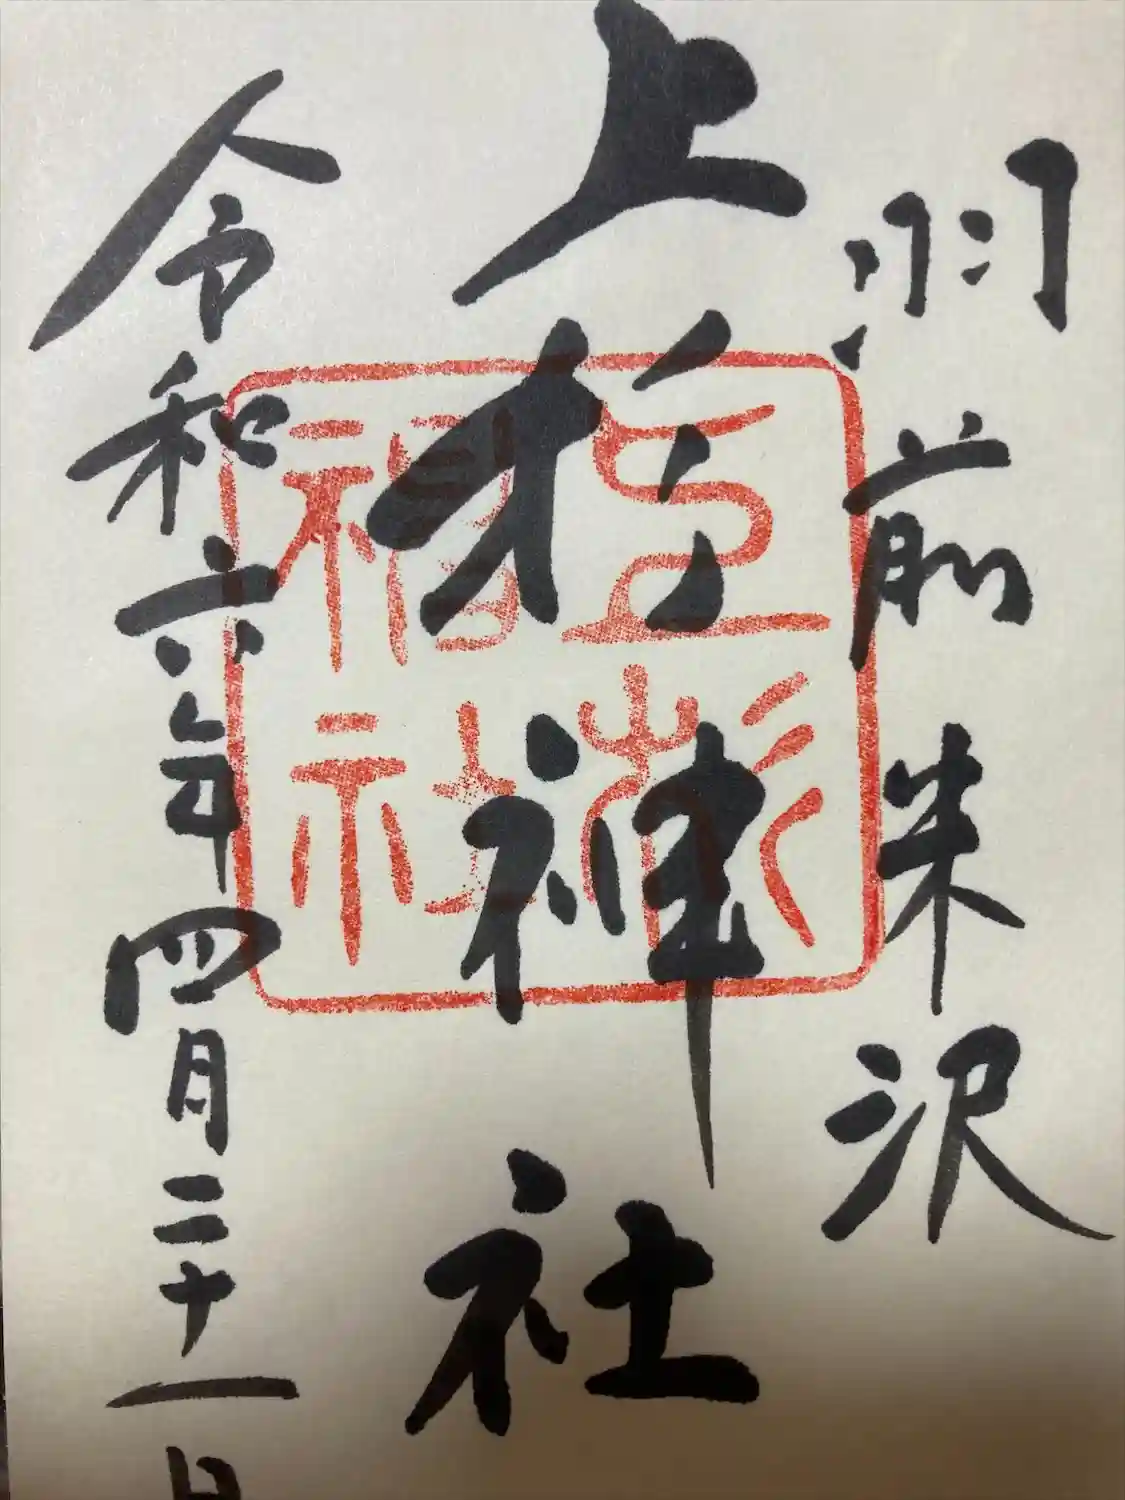 羽前米沢
上杉神社
令和六年四月二十一日
上杉神社